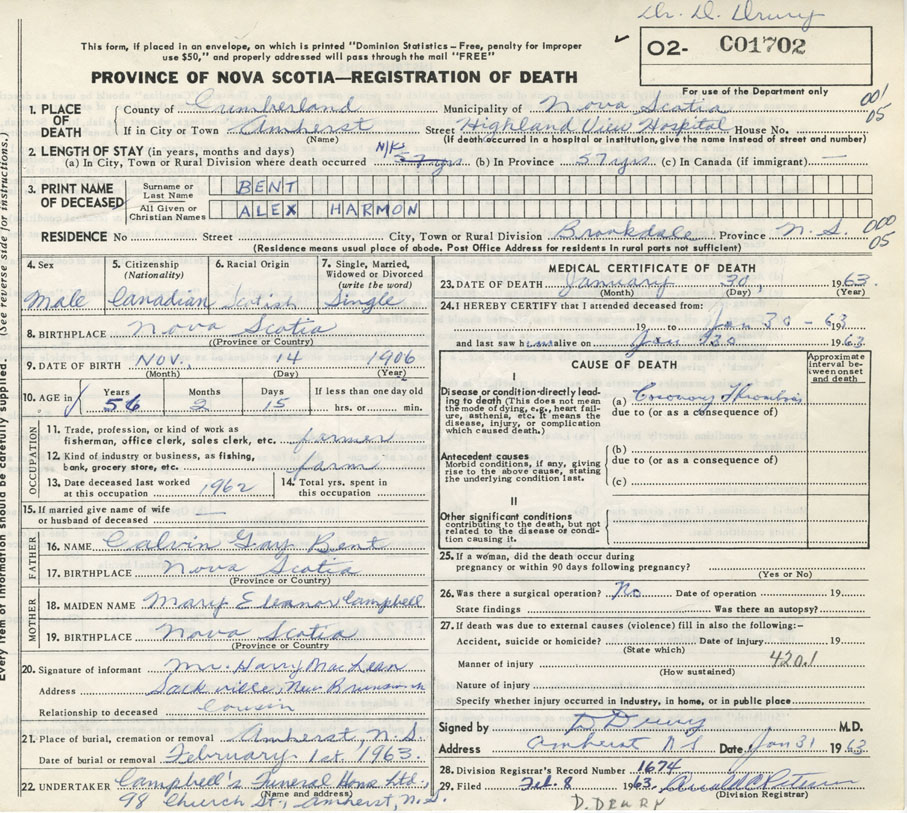 Dr. D. Drury
This form, if placed in an envelope, on which is printed "Dominion Statistics – Free, penalty for improper
use $50," and properly addressed will pass through the mail "FREE"
O2- C01702
For use of the Department only
PROVINCE OF NOVA SCOTIA—REGISTRATION OF DEATH
1. PLACE OF DEATH County of Cumberland Municipality of Nova Scotia 001 05
If in City or Town Amherst Street Highland View Hospital House No.
(Name) (If death occurred in a hospital or institution, give the name instead of street and number)
2. LENGTH OF STAY (in years, months and days)
(a) In City, Town or Rural Division where death occurred N/K 57 yrs (b) In Province 57 yrs (c) In Canada (if immigrant) —
3. PRINT NAME OF DECEASED Surname or Last Name BENT
All Given or Christian Names ALEX HARMON
RESIDENCE No Street City, Town or Rural Division Brookdale Province N.S. 000 05
(Residence means usual place of abode. Post Office Address for residents in rural parts not sufficient)
4. Sex Male
5. Citizenship (Nationality) Canadian
6. Racial Origin Scotish
7. Single, Married, Widowed or Divorced (write the word) Single
8. BIRTHPLACE Nova Scotia
(Province or Country)
9. DATE OF BIRTH Nov. 14 1906
(Month) (Day) (Year)
10. AGE in Years 56 Months 2 Days 15 If less than one day old hrs. or min.
OCCUPATION
11. Trade, profession, or kind of work as
fisherman, office clerk, sales clerk, etc. farmer
12. Kind of industry or business, as fishing,
bank, grocery store, etc. farm
13. Date deceased last worked at this occupation 1962
14. Total yrs. spent in this occupation
15. If married give name of wife
or husband of deceased —
FATHER
16. NAME Calvin Gay Bent
17. BIRTHPLACE Nova Scotia
(Province or Country)
MOTHER
18. MAIDEN NAME Mary Eleanor Campbell
19. BIRTHPLACE Nova Scotia
(Province or Country)
20. Signature of informant Mr. Harry MacLean
Address Sackville, New Brunswick
Relationship to deceased Cousin
21. Place of burial, cremation or removal Amherst, N.S.
Date of burial or removal February 1st, 1963.
22. UNDERTAKER Campbell's Funeral Home Ltd.,
(Name and address)
98 Church St., Amherst, N.S.
MEDICAL CERTIFICATE OF DEATH
23. DATE OF DEATH January 30, 1963
(Month) (Day) (Year)
24. I HEREBY CERTIFY that I attended deceased from:
19 to Jan 30 - 63 19
and last saw him alive on Jan 30 1963
CAUSE OF DEATH
Approximate interval between onset and death
I
Disease or condition directly leading to death (This does not mean the mode of dying, e.g., heart failure, asthenia, etc. It means the disease, injury, or complication which caused death.)
(a) Coronary Thrombosis
due to (or as a consequence of)
Antecedent causes
Morbid conditions, if any, giving rise to the above cause, stating the underlying condition last.
(b)
due to (or as a consequence of)
(c)
II
Other significant conditions
contributing to the death, but not related to the disease or condition causing it.
25. If a woman, did the death occur during
pregnancy or within 90 days following pregnancy?
(Yes or No)
26. Was there a surgical operation? No Date of operation 19
State findings Was there an autopsy?
27. If death was due to external causes (violence) fill in also the following:–
Accident, suicide or homicide? Date of injury 19
(State which)
Manner of injury 420.1
(How sustained)
Nature of injury
Specify whether injury occurred in industry, in home, or in public place
Signed by D Drury M.D.
Address Amherst NS Date Jan 31 1963
28. Division Registrar's Record Number 1674
29. Filed Feb. 8 1963
(Division Registrar)
D. DRURY
Every item of information should be carefully supplied. (See reverse side for instructions.)